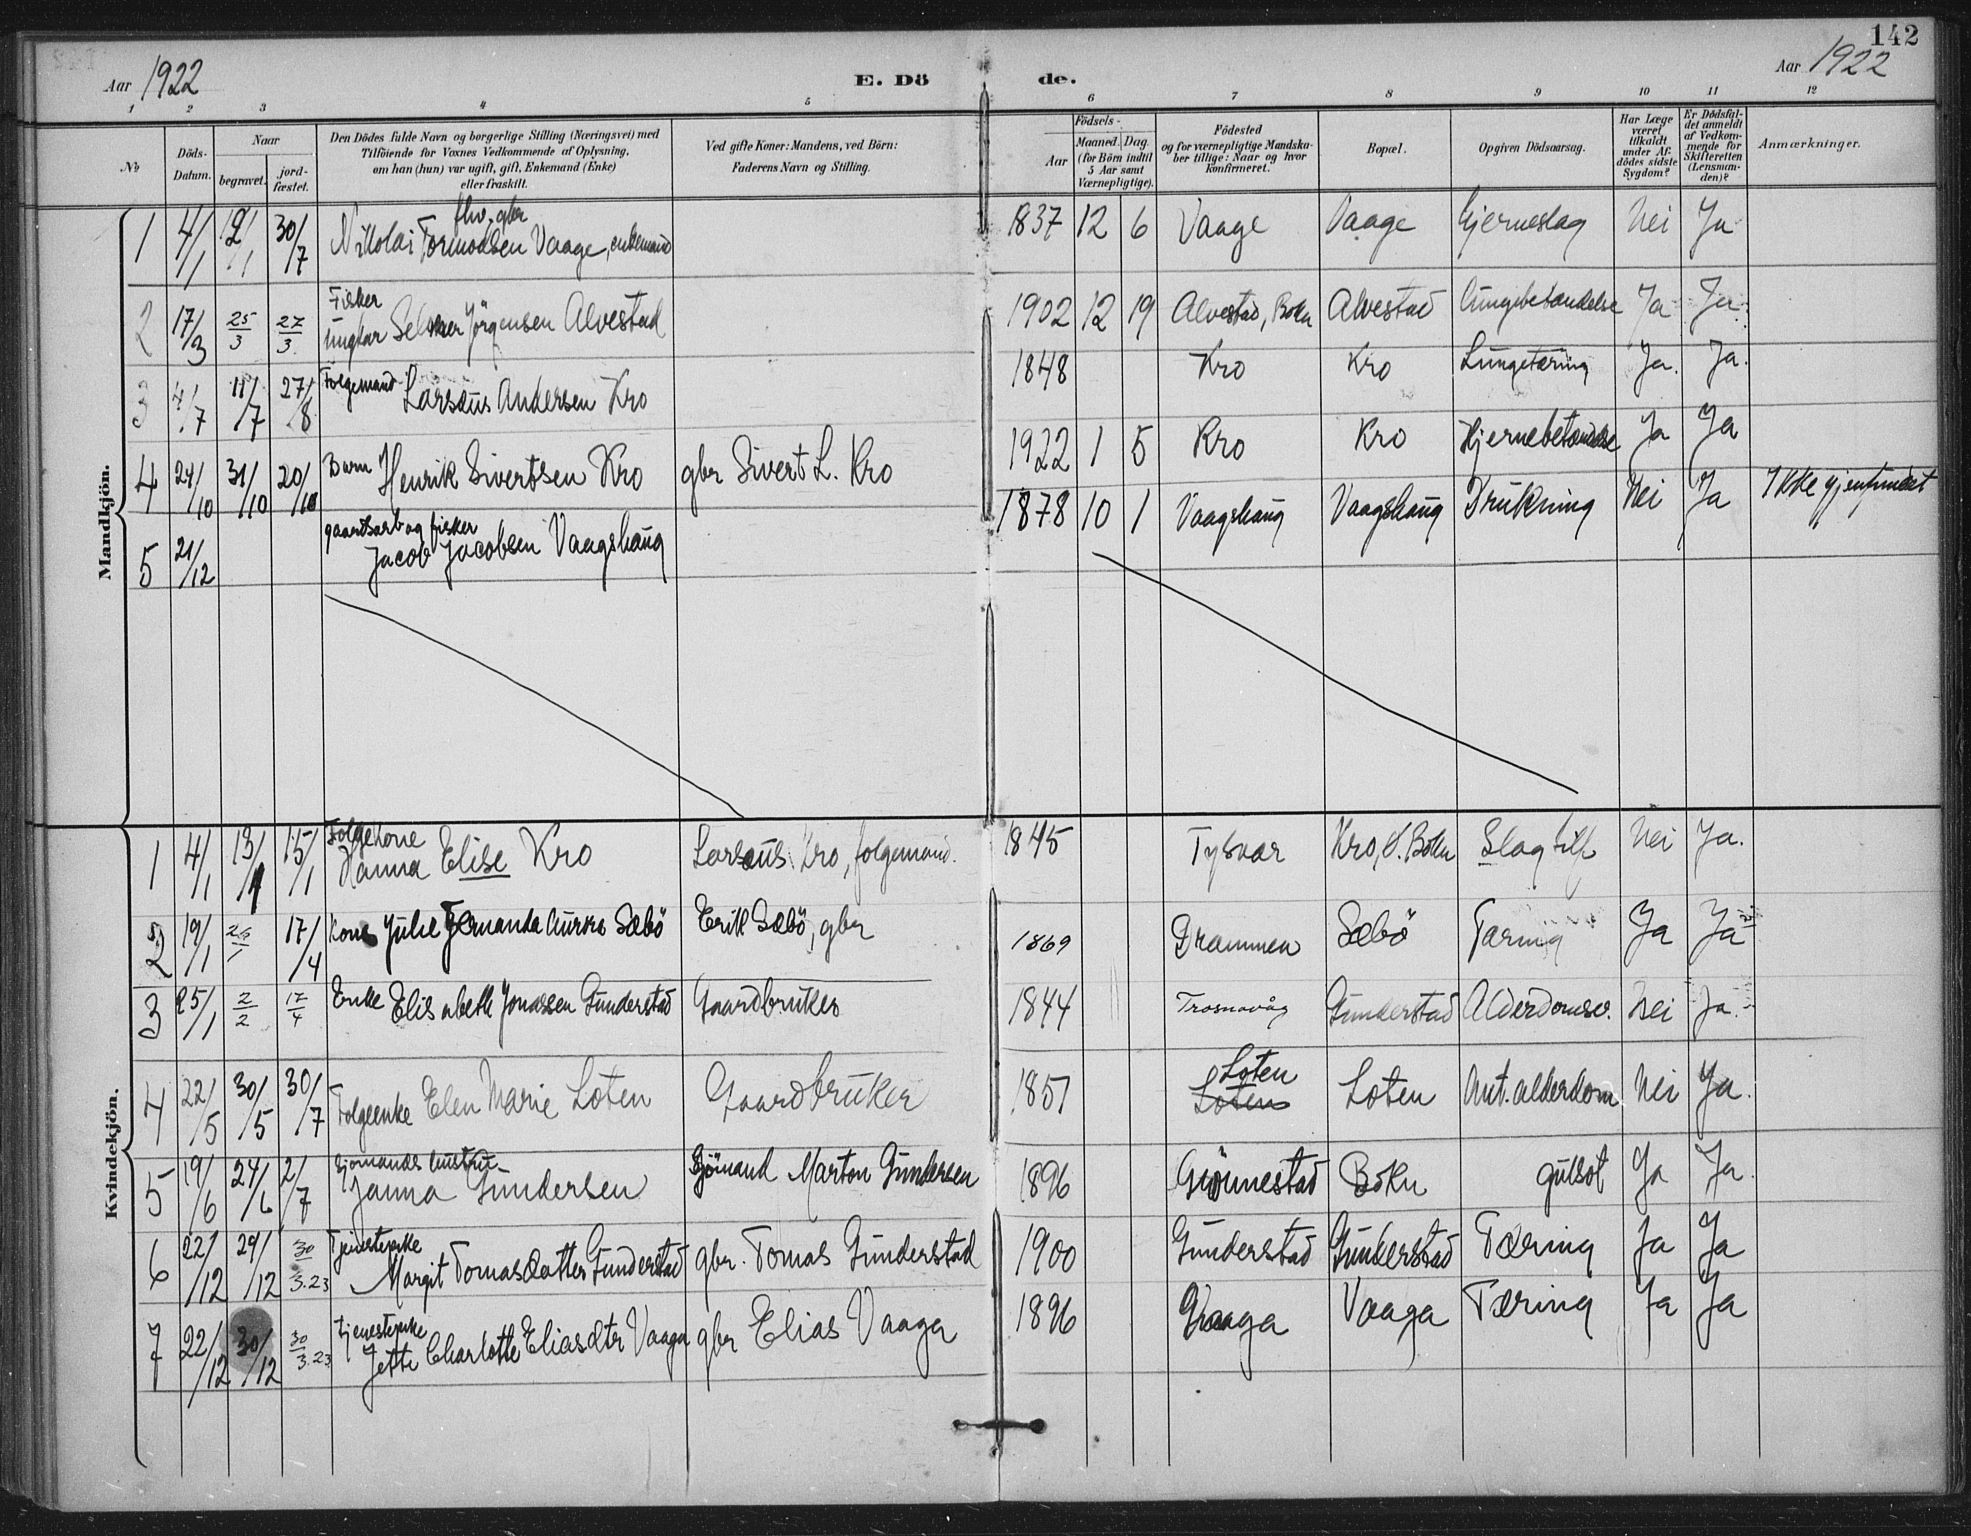 142
Aar 1922 E. Dö de. Aar 1922
1 2 3 4 5 6 7 8 9 10 11 12
No. Döds-Datum. Naar begravet. jord-fæstet. Den Dödes fulde Navn og borgerlige Stilling (Næringsvei) med Tilföiende for Voxnes Vedkommende af Oplysning, om han (hun) var ugift, gift, Enkemand (Enke) eller fraskilt. Ved gifte Koner: Mandens, ved Börn: Faderens Navn og Stilling. Födsels- Aar Maaned. Dag. (for Börn indtil 5 Aar samt Værnepligtige). Födested og for værnepligtige Mandskaber tillige: Naar og hvor Konfirmeret. Bopæl. Opgiven Dödsaarsag. Har Læge været tilkaldt under Afdödes sidste Sygdom? Er Dödsfaldet anmeldt af Vedkommende for Skifteretten (Lensmanden)? Anmærkninger.
Mandkjön.
1 4/1 12/1 30/7 fhv. gbr Nikolai Tormodsen Vaage, enkemand 1837 12 6 Vaage Vaage Hjerneslag Nei Ja
2 17/3 25/3 27/3 Fisker ungkar Jörgensen Alvestad 1902 12 19 Alvestad, Bokn Alvestad Lungebetændelse Ja Ja.
3 4/7 11/7 27/8 Folgemand Larsæus Andersen Kro 1848 Kro Kro Lungetæring Ja. Ja.
4 24/10 31/10 20/10 Barn Henrik Sivertsen Kro gbr Sivert L. Kro 1922 1 5 Kro Kro Hjernebetændelse Ja Ja
5 21/12 gaardsarb og fisker Jacob Jacobsen Vaagshaug 1878 10 1 Vaagshaug Vaagshaug Drukning Nei Ja Ikke gjenfundet
Kvindekjön.
1 4/1 13/1 15/1 Folgekone Hanna Elise Kro Larsæus Kro, folgemand. 1845 Tysvær Kro, S. Bokn Slagtilf Nei Ja.
2 19/1 26/1 17/4 Kone Julie Fernanda Aurora Sæbö Erik Sæbö, gbr 1869 Drammen Sæbö Tæring Ja Ja
3 25/1 2/2 17/4 Enke Elisabeth Jonassen Gunderstad Gaardbruker 1844 Trosnavåg Gunderstad Alderdomsv. Nei Ja.
4 22/5 30/5 30/7 Folgeenke Elen Marie Loten Gaardbruker 1851 Loten Loten Loten Ant. alderdom Nei Ja.
5 19/6 24/6 2/7 Sjömands hustru Janna Gundersen Sjömand Marton Gundersen 1896 Grönnestad Bokn gulsot Ja Ja.
6 22/12 29/12 30/3.23 Tjenestepike Margit Tomasdatter Gunderstad gbr. Tomas Gunderstad 1900 Gunderstad Gunderstad Tæring Ja Ja
7 22/12 30/12 30/3.23 Tjenestepike Jette Charlotte Eliasdtr Vaaga gbr Elias Vaaga 1896 Vaaga Vaaga Tæring Ja Ja